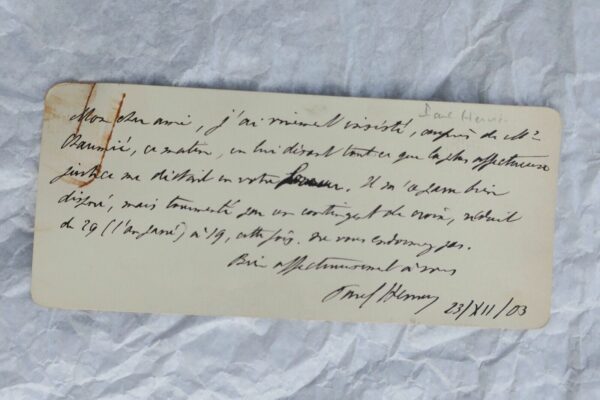 Paul Hervieu
Mon cher ami, j'ai vivement insisté, auprès de Mr
Chaumié, ce matin, en lui disant tout ce que la plus affectueuse
justice me dictait en votre faveur. Il m'a paru bien
disposé, mais tourmenté par un contingent de croix, réduit
de 29 (l'an passé) à 19, cette fois. Ne vous endormez pas.
Bien affectueusement à vous
Paul Hervieu 23/XII/03